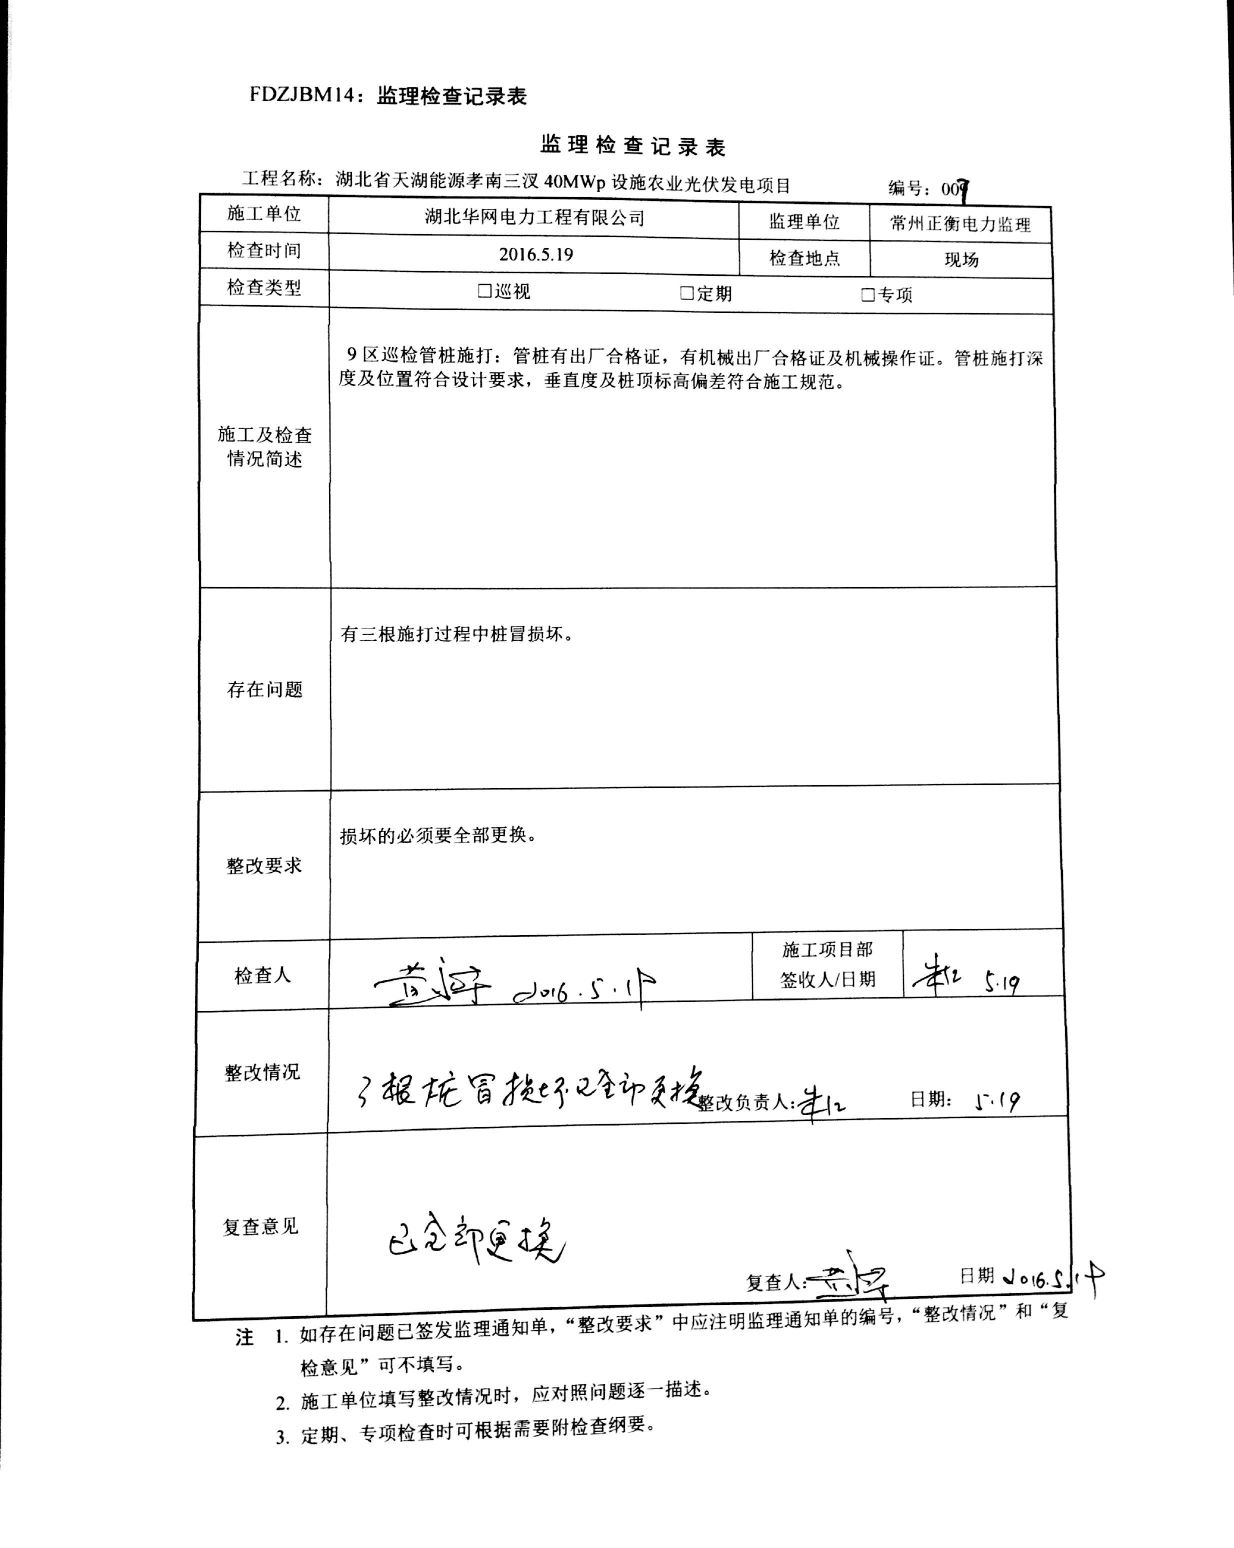 FDZJBM14：监理检查记录表
监理检查记录表
工程名称：湖北省天湖能源孝南三汊 40MWp 设施农业光伏发电项目 编号：009
施工单位 湖北华网电力工程有限公司 监理单位 常州正衡电力监理
检查时间 2016.5.19 检查地点 现场
检查类型 □巡视 □定期 □专项
9 区巡检管桩施打：管桩有出厂合格证，有机械出厂合格证及机械操作证。管桩施打深
度及位置符合设计要求，垂直度及桩顶标高偏差符合施工规范。
施工及检查
情况简述
有三根施打过程中桩冒损坏。
存在问题
损坏的必须要全部更换。
整改要求
施工项目部
检查人 2016.5.19 签收人/日期 5.19
整改情况 3根桩冒损坏已全部更换 整改负责人： 日期： 5.19
复查意见 已全部更换
复查人： 日期 2016.5.19
注 1. 如存在问题已签发监理通知单，“整改要求”中应注明监理通知单的编号，“整改情况”和“复
检意见”可不填写。
2. 施工单位填写整改情况时，应对照问题逐一描述。
3. 定期、专项检查时可根据需要附检查纲要。